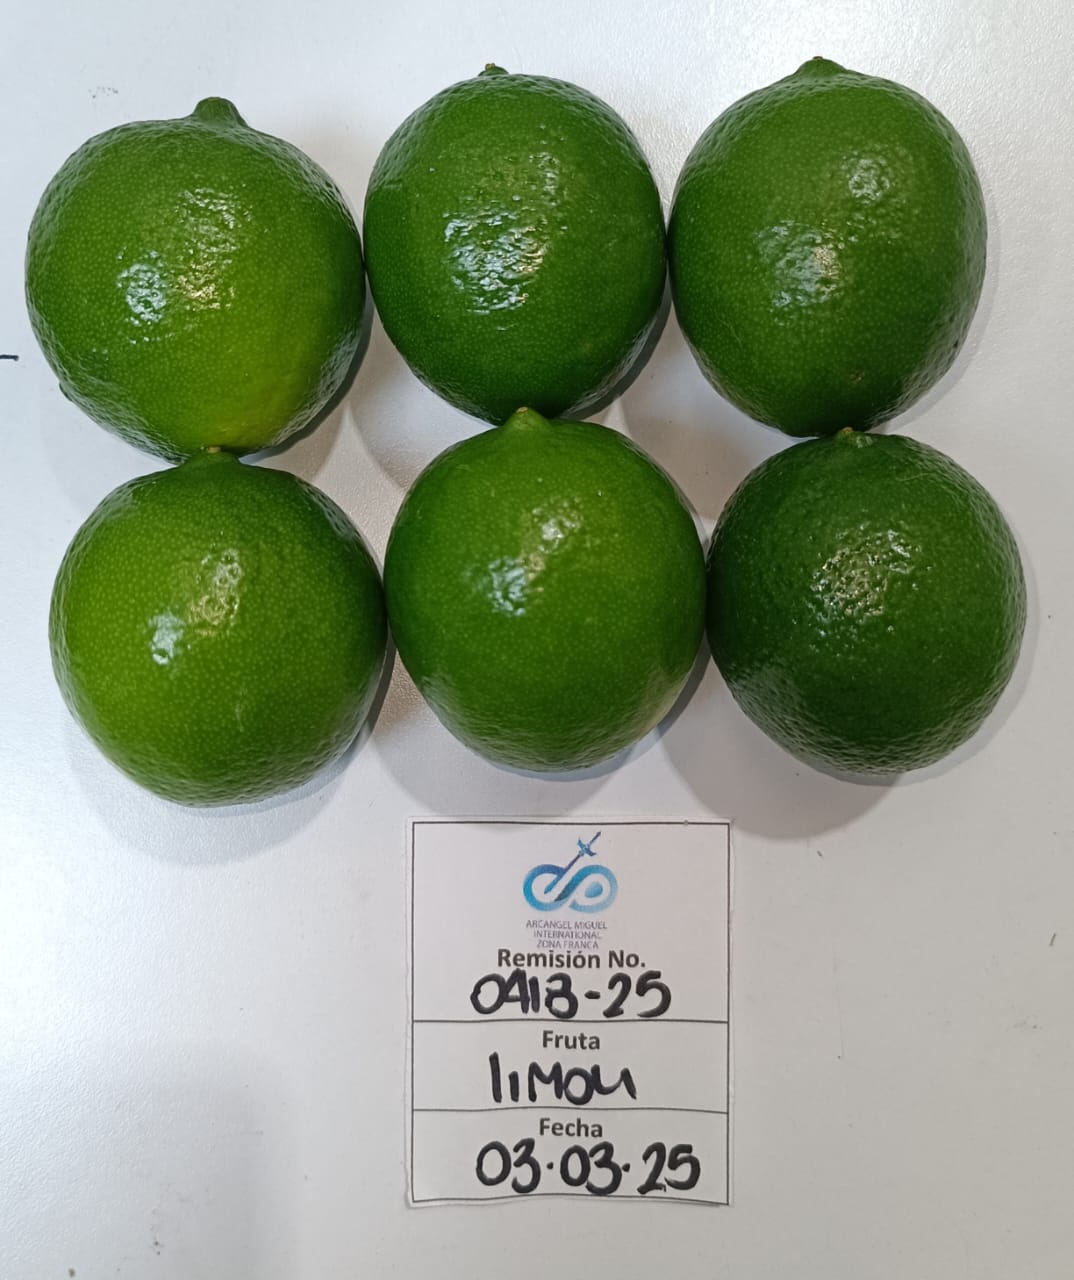 ARCANGEL MIGUEL
INTERNATIONAL
ZONA FRANCA
Remisión No.
0418-25
Fruta
limon
Fecha
03.03.25